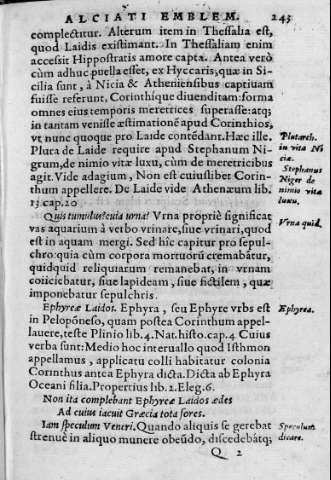 ALCIATI EMBLEM. 243
complectitur. Alterum item in Thessalia est,
quod Laidis existimant. In Thessaliam enim
accessit Hippostratis amore capta. Antea verò
cùm adhuc puella esset, ex Hyccaris, quæ in Si-
cilia sunt, à Nicia & Atheniensibus captiuam
fuisse referunt, Corinthíque diuenditam: forma
omnes eius temporis meretrices superasse: atq;
in tantam venisse æstimationē apud Corinthios,
vt nunc quoque pro Laide contēdant. Hæc ille.
Plura de Laide require apud Stephanum Ni-
grum, de nimio vitæ luxu, cùm de meretricibus
agit. Vide adagium, Non est cuiuslibet Corin-
thum appellere. De Laide vide Athenæum lib.
13 cap. 20
Plutarch.
in vita Ni
ciæ.
Stephanus
Niger de
nimio vitæ
luxu.
Quis tumulus? cuia urna? Vrna propriè significat
vas aquarium à verbo vrinare, siue vrinari, quod
est in aquam mergi. Sed hîc capitur pro sepul-
chro: quia cùm corpora mortuorū cremabātur,
quidquid reliquiarum remanebat, in vrnam
coiiciebatur, siue lapideam, siue fictilem, quæ
imponebatur sepulchris.
Vrna quid.
Ephyreæ Laidos. Ephyra, seu Ephyre vrbs est
in Peloponeso, quam postea Corinthum appel-
lauere, teste Plinio lib. 4. Nat. histo. cap. 4 Cuius
verba sunt: Medio hoc interuallo quod Isthmon
appellamus, applicatu colli habitatur colonia
Corinthus antea Ephyra dicta. Dicta ab Ephyra
Oceani filia. Propertius lib. 2. Eleg. 6.
Ephyrea.
Non ita complebant Ephyreæ Laidos ædes
Ad cuius iacuit Græcia tota fores.
Iam speculum Veneri. Quando aliquis se gerebat
strenuè in aliquo munere obeūdo, discedebátq;
Speculum
dicare.
Q 2